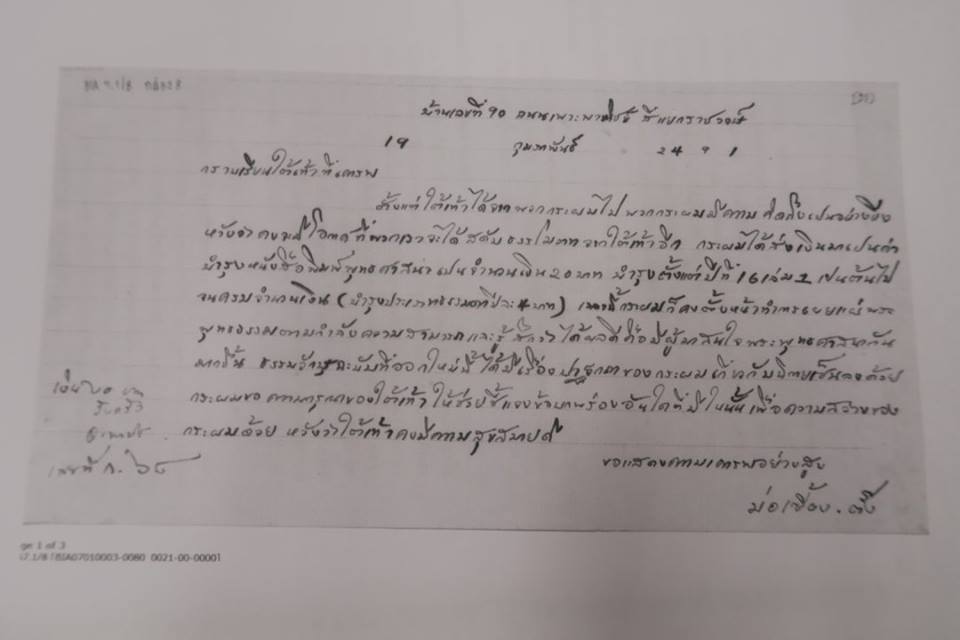 บ้านเลขที่ 90 ถนนเพาะพานิชย์ สี่แยกราชวงศ์
19 กุมภาพันธ์ 2491
กราบเรียนใต้เท้าที่เคารพ
ตั้งแต่ใต้เท้าได้จากพวกกระผมไป พวกกระผมมีความคิดถึงเป็นอย่างยิ่ง
หวังว่าคงจะมีโอกาสที่พวกเราจะได้สดับธรรมโอภาสจากใต้เท้าอีก กระผมได้ส่งเงินมาเป็นค่า
บำรุงหนังสือพิมพ์พุทธศาสนาเป็นจำนวนเงิน 20 บาท บำรุงตั้งแต่ปีที่ 16 เล่ม 1 เป็นต้นไป
จนครบจำนวนเงิน (บำรุงประเภทธรรมดาปีละ 4 บาท) เวลานี้กระผมก็คงตั้งหน้าทำการเผยแผ่พระ
พุทธธรรมตามกำลังความสามารถและรู้สึกว่าได้ผลดี คือมีผู้มาสนใจพระพุทธศาสนากัน
มากขึ้น ธรรมจักษุฉะบับที่ออกใหม่นี้ได้มีเรื่องปาฐกถาของกระผมเกี่ยวกับนิกายเซ็นลงด้วย
กระผมขอความกรุณาของใต้เท้าให้ช่วยชี้แจงข้อบกพร่องอันใดที่มีในนั้น เพื่อความสว่างของ
กระผมด้วย หวังว่าใต้เท้าคงมีความสุขสบายดี
ขอแสดงความเคารพอย่างสูง
ม่อเซี้ยง . ตั๊ง
เลขที่ ก. ๖๘
ge 1 of 3
7.1/8 [BIA07010003-0080 0021-00-0000]